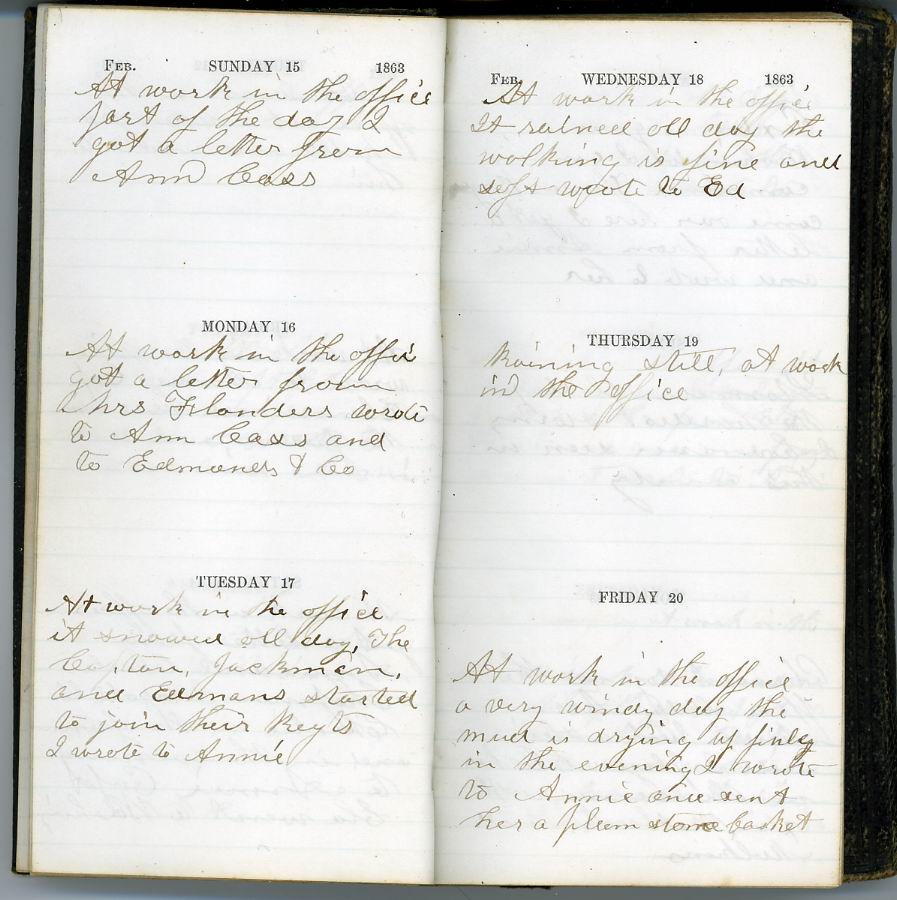 FEB. SUNDAY 15 1863
At work in the office
part of the day I
got a letter from
Ann Cass
MONDAY 16
At work in the office
got a letter from
Mrs Flanders wrote
to Ann Cass and
to Edmands & Co
TUESDAY 17
At work in the office
it snowed all day, The
Capton, Jackman,
and Edmans started
to join their Regts
I wrote to Annie
FEB. WEDNESDAY 18 1863
At work in the office
It rained all day the
walking is fine and
soft wrote to Ed
THURSDAY 19
Raining still, at work
in the office
FRIDAY 20
At work in the office
a very windy day the
mud is drying up finly
in the evening I wrote
to Annie and sent
her a plum stone basket